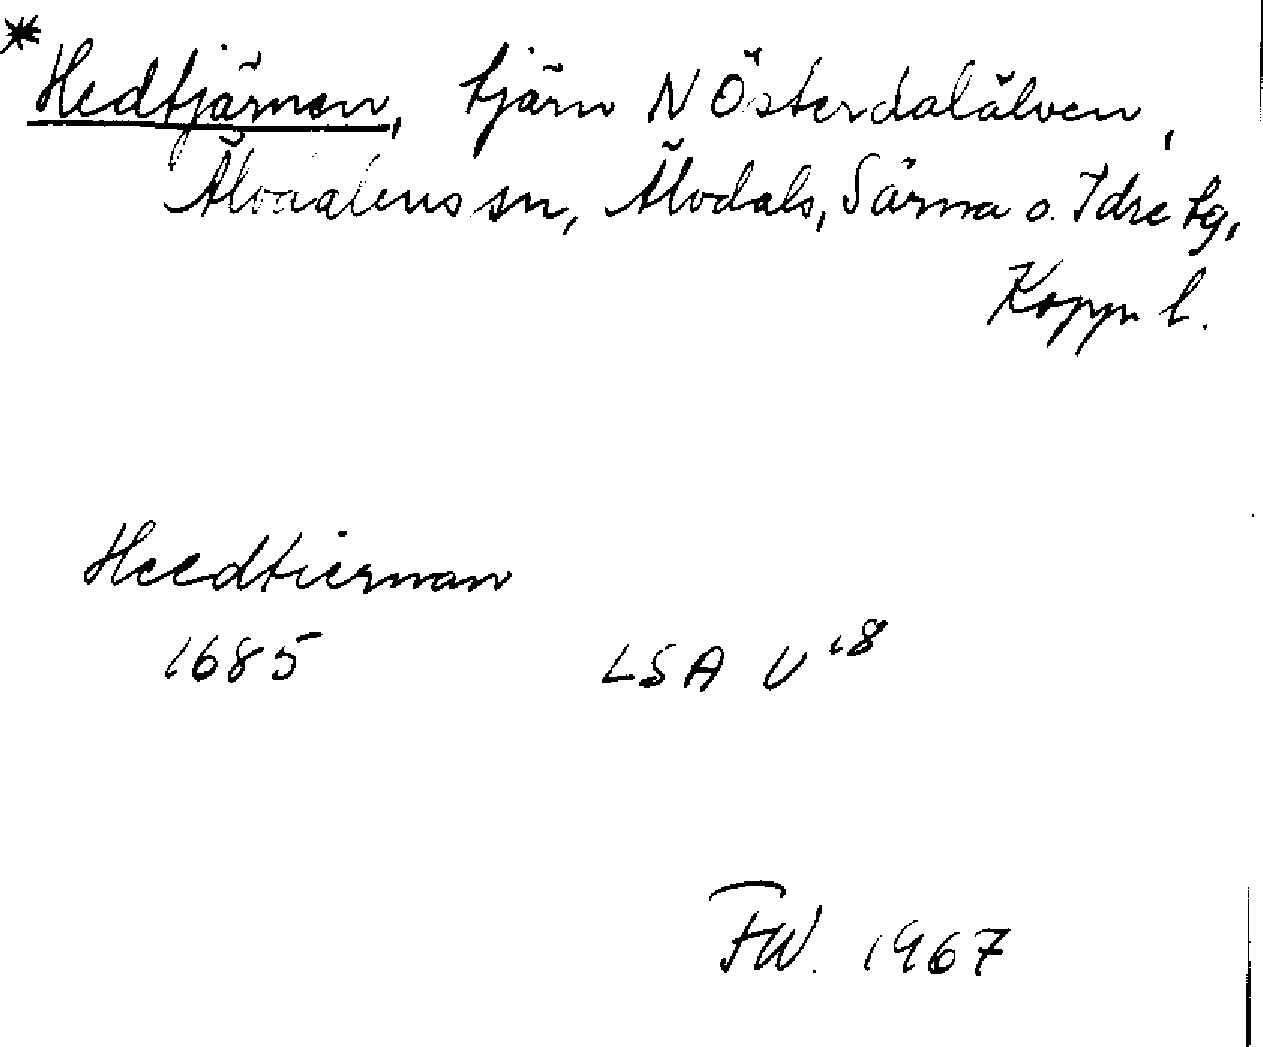 *Hedtjärnen, tjärn N Österdalälven,
Älvdalens sn, Älvdals, Särna o. Idre tg,
Kopp. l.
Heedtiernan
1685 LSA U18
FW. 1967